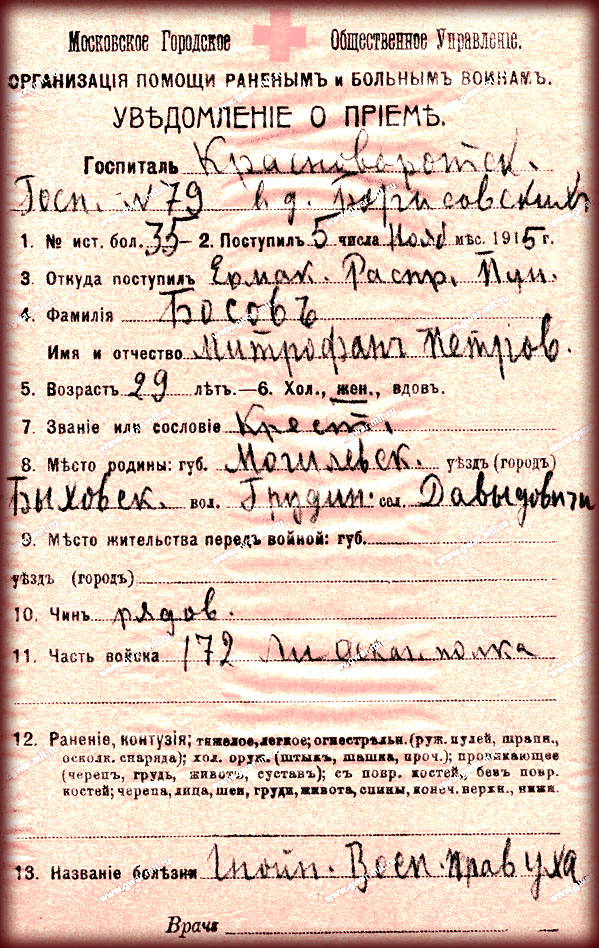 Московское Городское Общественное Управленіе.
ОРГАНИЗАЦІЯ ПОМОЩИ РАНЕНЫМЪ и БОЛЬНЫМЪ ВОИНАМЪ.
УВѢДОМЛЕНІЕ О ПРІЕМѢ.
Госпиталь Красноворотск.
Госп. № 79 в д. Борисовскихъ
1. № ист. бол. 35 – 2. Поступилъ 5 числа Нояб мѣс. 1915 г.
3. Откуда поступилъ Ермак. Распр. Пун.
4. Фамилія Босовъ
Имя и отчество Митрофанъ Петров.
5. Возрастъ 29 лѣтъ.—6. Хол., жен., вдов.
7. Званіе или сословіе Крест.
8. Мѣсто родины: губ. Могилевск. уѣздъ (городъ)
Быховск. вол. Грудин. сел. Давыдовичи
9. Мѣсто жительства передъ войной: губ.
уѣздъ (городъ)
10. Чинъ рядов.
11. Часть войска 172 Лидскаго полка
12. Раненіе, контузія; тяжелое, легкое; огнестрѣльн. (руж. пулей, шрапн.,
осколк. снаряда); хол. оруж. (штыкъ, шашка, проч.); проникающее
(черепъ, грудь, животъ, суставъ); съ повр. костей, безъ повр.
костей; черепа, лица, шеи, груди, живота, спины, конеч. верхн., нижн.
13. Названіе болѣзни Гнойн. Восп. прав уха
Врачъ